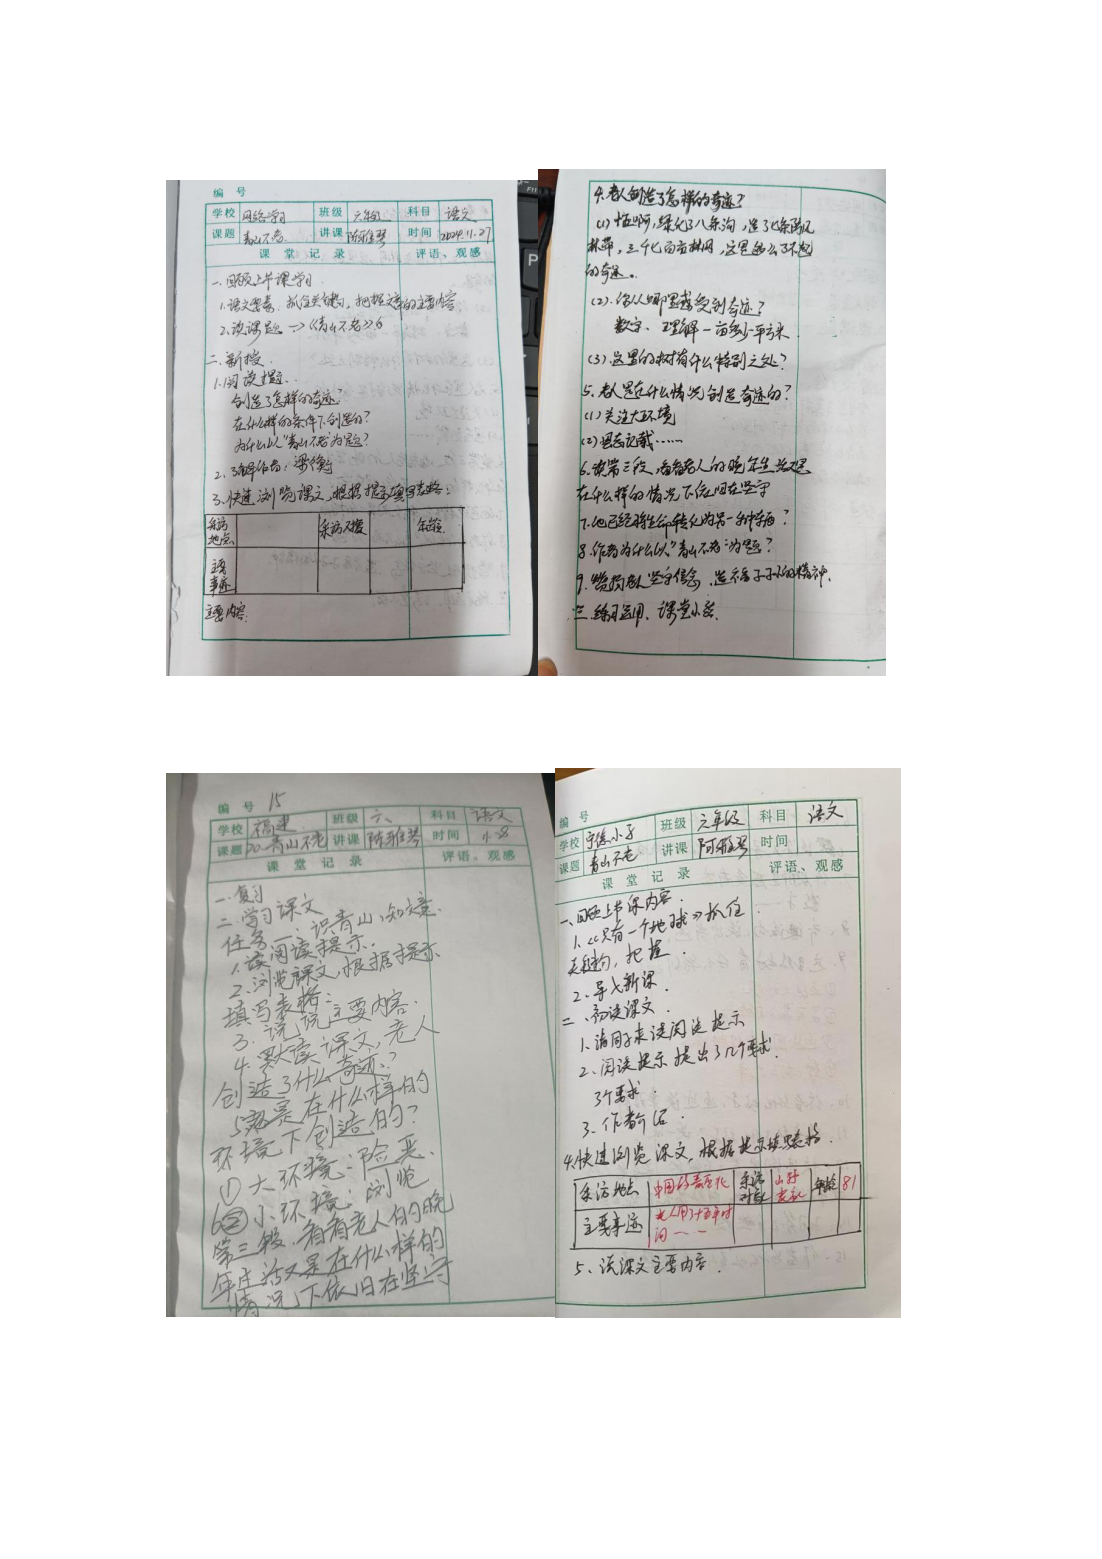 编 号
学校 网络学习 班级 六年级 科目 语文
课题 青山不老 讲课 陈雅琴 时间 2024.11.27
课 堂 记 录 评语、观感
一、回顾上节课学习
1.语文要素:抓住关键句,把握文章的主要内容
2.读课题 →《青山不老》
二、新授
1.阅读提示:
创造了怎样的奇迹?
在什么样的条件下创造的?
为什么以"青山不老"为题?
2.了解作者:梁衡
3.快速浏览课文,根据提示填写表格:
采访地点 采访 年龄
主要事迹
主要内容:
4.老人创造了怎样的奇迹?
(1) 啊,绿化了八条沟,造了七条防风
林带,三千七百亩林网,这是多么了不起
的奇迹。
(2).你从哪里感受到奇迹?
数字、理解一亩多少平方米
(3)这里的树有什么特别之处?
5.老人是在什么情况创造奇迹的?
(1)关注大环境
(2)县志记载……
6.读第三段,看看老人的晚年生活又是
在什么样的情况下依旧在坚守
7.他已经将生命转化为另一种东西?
8.作者为什么以"青山不老"为题?
9.赞扬老人坚守信念,造福子孙的精神.
三.练习运用、课堂小结.
编 号 15
学校 福建 班级 六、 科目 语文
课题 20.青山不老 讲课 陈雅琴 时间 11-28
课 堂 记 录 评语、观感
一.复习
二.学习课文
任务一:识青山,知大意.
1.读阅读提示.
2.浏览课文,根据提示
填写表格:
3.说说主要内容.
4.默读课文,老人
创造了什么奇迹?
5.是在什么样的
环境下创造的?
①大环境:险恶.
6②小环境:浏览
第三段,看看老人的晚
年生活又是在什么样的
情况下依旧在坚守
编 号
学校 宁德小学 班级 六年级 科目 语文
课题 青山不老 讲课 陈雅琴 时间
课 堂 记 录 评语、观感
一、回顾上节课内容.
1.《只有一个地球》抓住
关键句,把握.
2.导入新课.
二、初读课文.
1.请同学来读阅读提示
2.阅读提示提出了几个要求.
3个要求
3.作者介绍
4.快速浏览课文,根据提示填表格.
采访地点 中国的晋西北 采访对象 山野老农 年龄 81
主要事迹 老人用了十五年时间——
5、说课文主要内容.